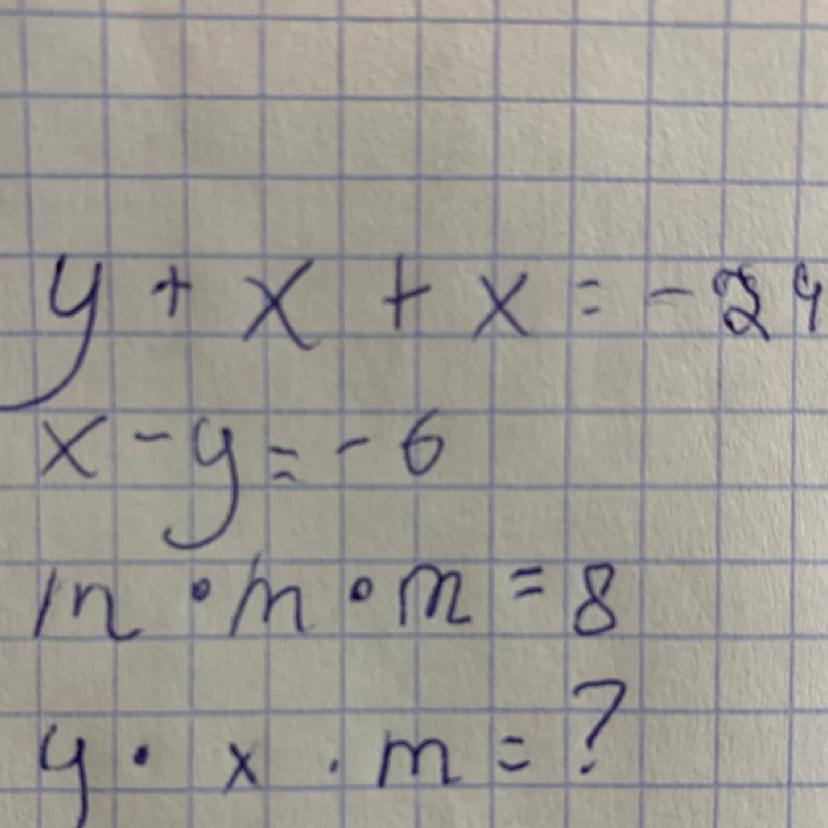 y + x + x = - 24
x - y = - 6
m · m · m = 8
y · x · m = ?